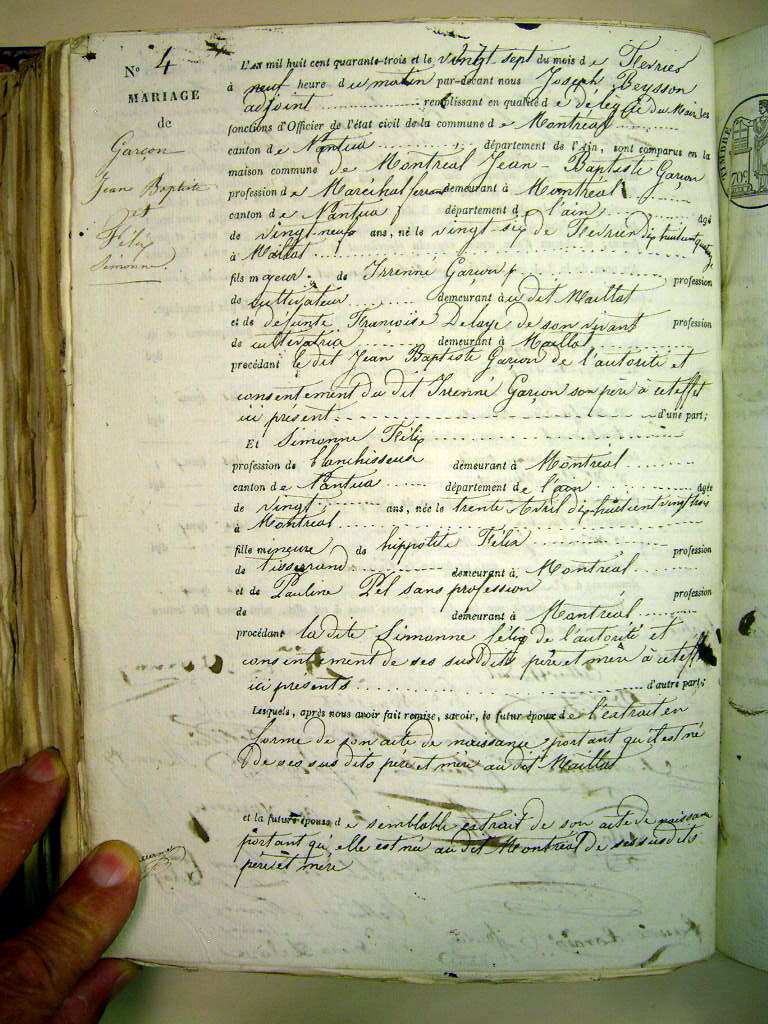 N° 4
MARIAGE
de
Garçon
Jean Baptiste
et
Félix
Simonne.
L'an mil huit cent quarante-trois et le vingt sept du mois de Fevrier
à neuf heure du matin par-devant nous Joseph Beysson
adjoint remplissant en qualité de délégué du Maire les
fonctions d'Officier de l'état civil de la commune de Montréal
canton de Nantua département de l'Ain, sont comparus en la
maison commune de Montreal Jean-Baptiste Garçon
profession de Maréchal ferrant demeurant à Montreal
canton de Nantua département de l'ain âgé
de vingt-neuf ans, né le vingt-six de Fevrier dix huit cent quatorze
à Maillat
fils majeur de Irrenné Garçon profession
de cultivateur demeurant au dit Maillat
et de défunte Francoise Delaye de son vivant profession
de cultivatrice demeurant à Maillat
procédant le dit Jean Baptiste Garçon de l'autorité et
consentement du dit Irrenné Garçon son père à cet effet
ici présent d'une part;
Et Simonne Félix
profession de blanchisseuse demeurant à Montréal
canton de Nantua département de l'ain âgée
de vingt ans, née le trente Avril dix huit cent vingt trois
à Montreal
fille mineure de hippolite Félix profession
de tisserand demeurant à Montréal
et de Pauline Pel sans profession profession
de demeurant à Montréal
procédant la dite Simonne félix de l'autorité et
consentement de ses susdits père et mère à cet effet
ici présents d'autre part;
Lesquels, après nous avoir fait remise, savoir, le futur époux de l'extrait en
forme de son acte de naissance portant qu'il est né
de ses sus dits père et mère au dit Maillat
et la future épouse de semblable extrait de son acte de naissance
portant qu'elle est née au dit Montréal de ses susdits
père et mère
TIMBRE
70c